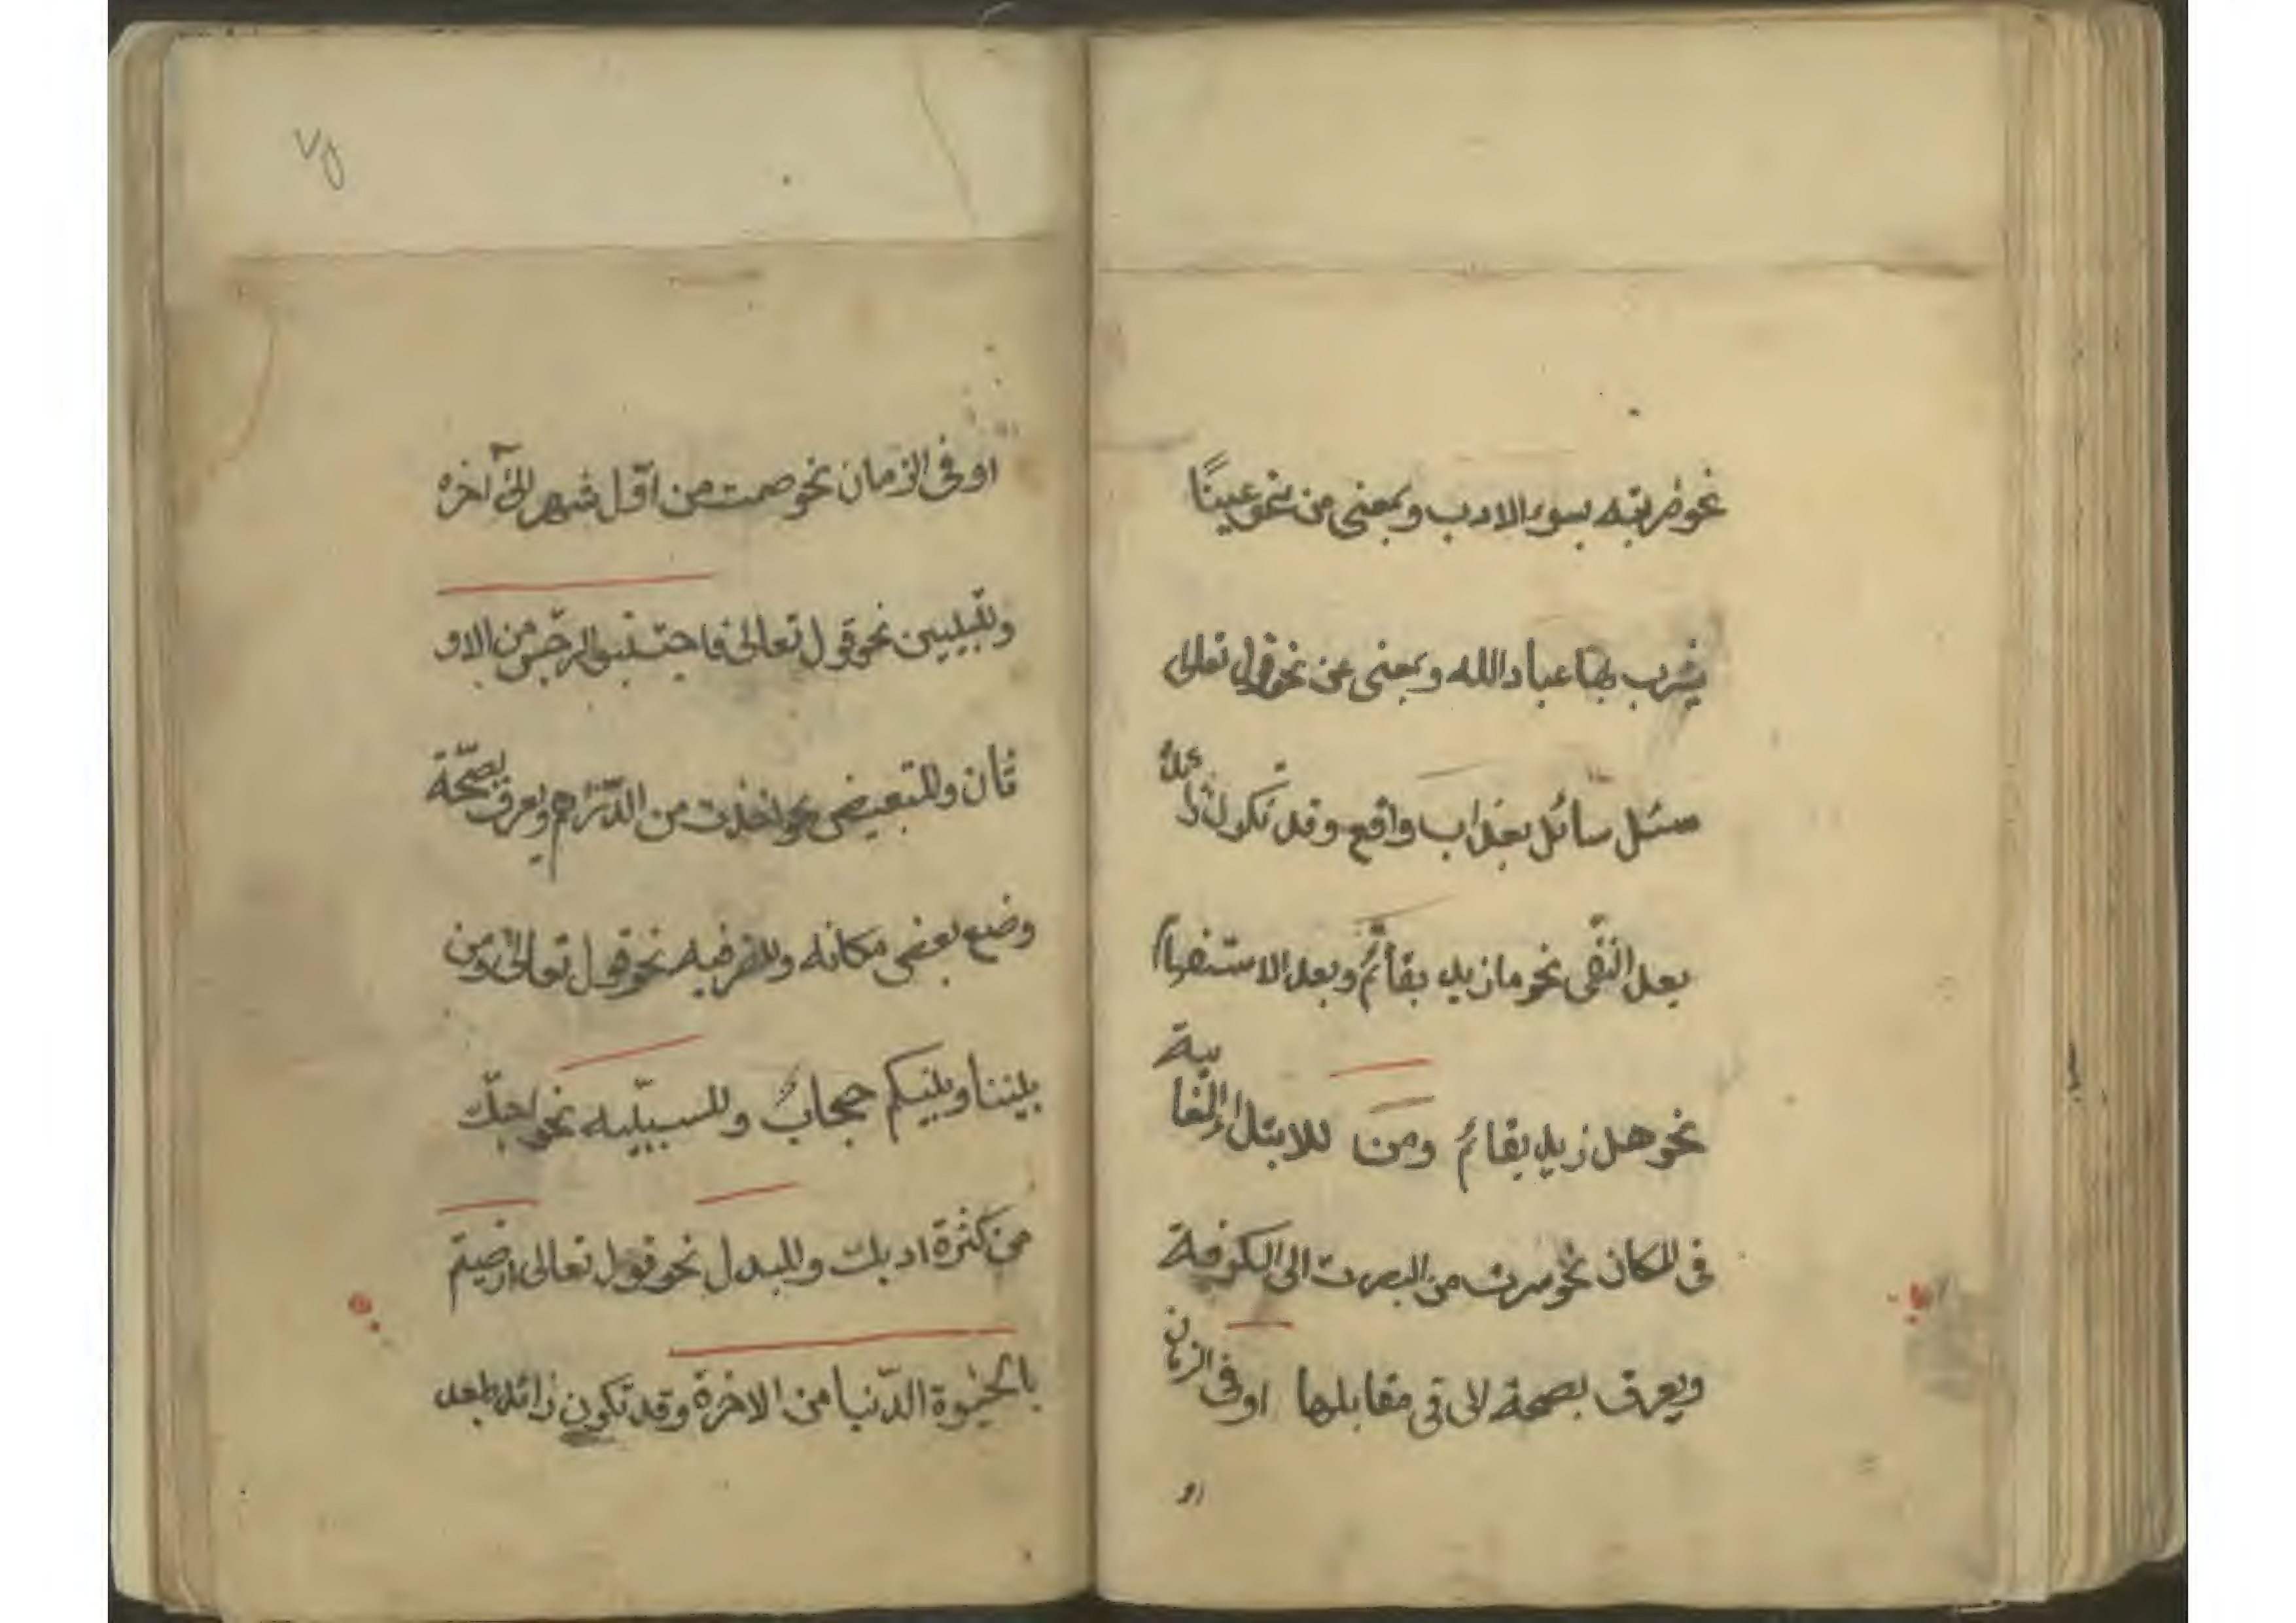 نحو ضربته بسوء الادب وبمعنى من نحو عينًا
يشرب بها عباد الله وبمعنى عن نحو قول تعالى
سئل سائل بعذاب واقع وقد تكون زائدة
بعد النفى نحو ما زيد بقائم وبعد الاستفهام
نحو هل زيد بقائم ومن للابتداء الغايية
فى المكان نحو سرت من البصرت الى الكوفة
ويعرف بصحة الى فى مقابلها او فى الزمان
او
او فى الزمان نحو صمت من اوّل شهر الى آخره
وللتبيين نحو قول تعالى فاجتنبوا الرجس من الاو
ثان وللتبعيض نحو اخذت من الدّراهم ويعرف بصحّة
وضع بعض مكانه وللظرفيه نحو قول تعالى ومن
بيننا وبينكم حجابٌ وللسببيّه نحو احبّك
من كثرة ادبك وللبدل نحو قول تعالى ارضيتم
بالحيوة الدّنيا من الاخرة وقد تكون زائدة بعد